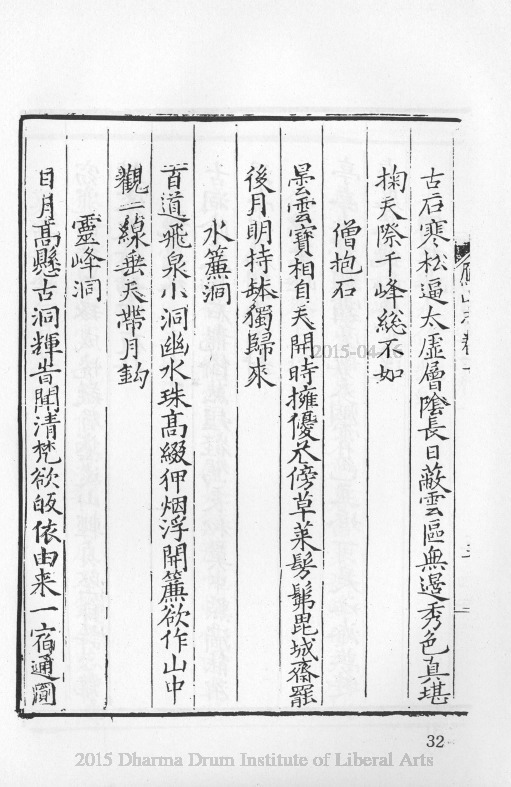 古石寒松逼太虛層陰長日蔽雲區無邊秀色真堪
掬天際千峰総不如
僧抱石
曇雲寶相自天開時擁優曇傍草萊髣髴毘城齋罷
後月明持鉢獨歸來
水簾洞
百道飛泉小洞幽水珠高綴狎烟浮開簾欲作山中
觀一線垂天帶月鈎
靈峰洞
日月高懸古洞輝昔聞清梵欲皈依由来一宿通
32
2015-04-16
2015 Dharma Drum Institute of Liberal Arts